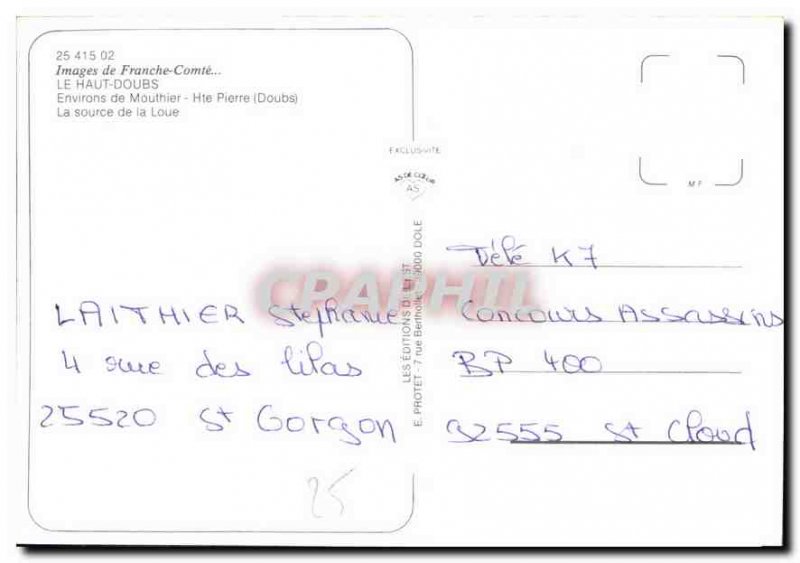 25 415 02
Images de Franche-Comté...
LE HAUT-DOUBS
Environs de Mouthier - Hte Pierre (Doubs)
La source de la Loue
EXCLUSIVITE
AS DE CŒUR
AS
M F
LES ÉDITIONS DE L'EST
E. PROTET - 7 rue Berthollet - 39000 DOLE
CPAPHIL
LAITHIER Stephanie
4 rue des lilas
25520 St Gorgon
25
Télé K7
Concours Assassins
BP 400
92555 St Cloud